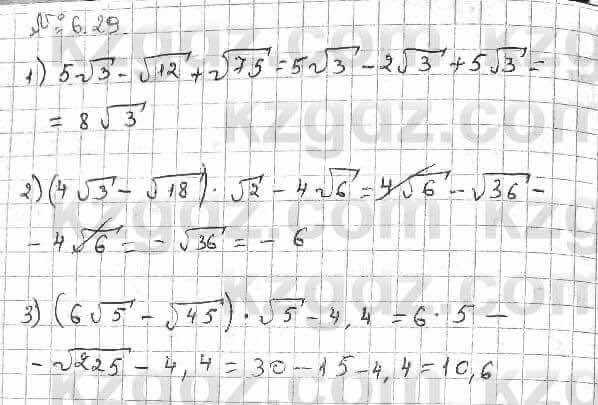 № 6.29.
1) 5√3 - √12 + √75 = 5√3 - 2√3 + 5√3 =
= 8√3
2) (4√3 - √18) · √2 - 4√6 = 4√6 - √36 -
- 4√6 = - √36 = - 6
3) (6√5 - √45) · √5 - 4,4 = 6 · 5 -
- √225 - 4,4 = 30 - 15 - 4,4 = 10,6
kzgdz.com